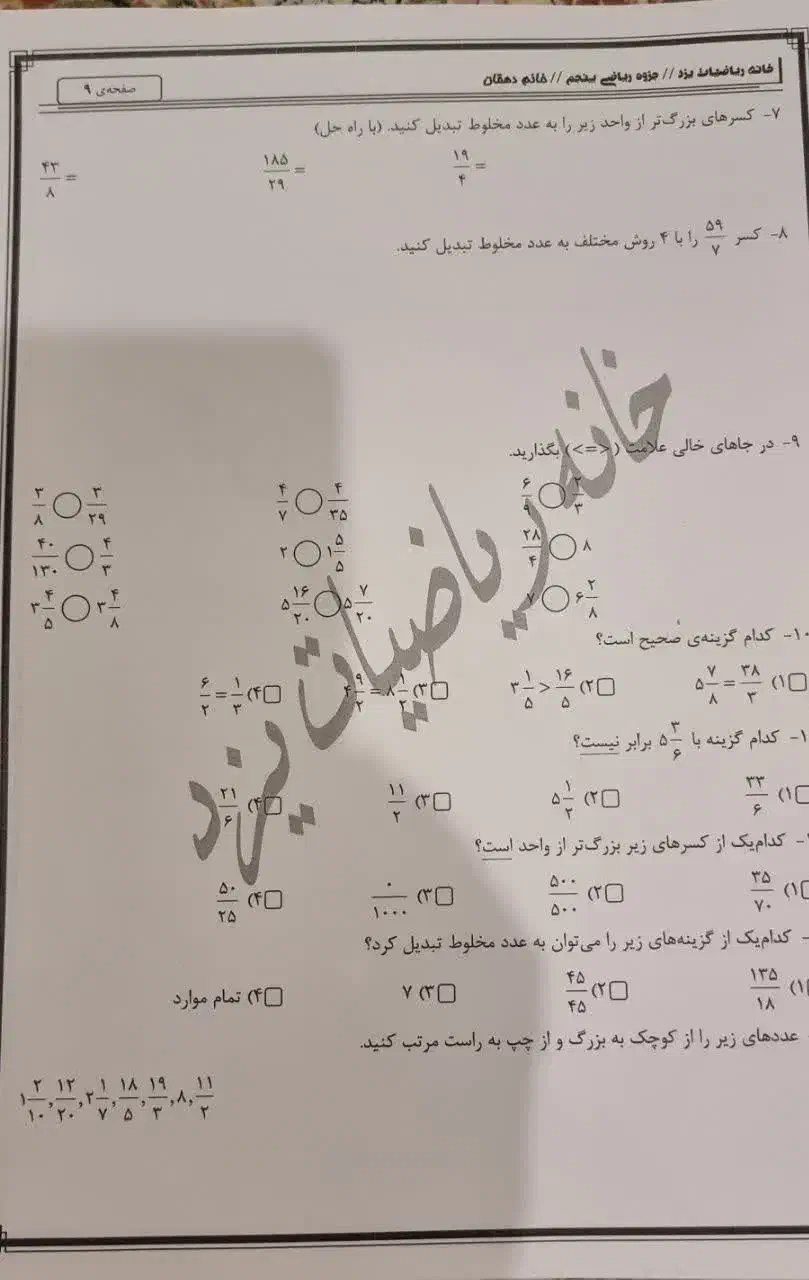 خانه ریاضیات یزد // جزوه ریاضی پنجم // خانم دهقان
صفحه‌ی ۹
۷- کسرهای بزرگ‌تر از واحد زیر را به عدد مخلوط تبدیل کنید. (با راه حل)
۴۳/۸ = ۱۸۵/۲۹ = ۱۹/۴ =
۸- کسر ۵۹/۷ را با ۴ روش مختلف به عدد مخلوط تبدیل کنید.
۹- در جاهای خالی علامت (<=>) بگذارید.
۳/۸ ○ ۳/۲۹ ۴/۷ ○ ۴/۳۵ ۶/۹ ○ ۲/۳
۴۰/۱۳۰ ○ ۴/۳ ۲ ○ ۱ ۵/۵ ۲۸/۴ ○ ۸
۳ ۴/۵ ○ ۳ ۴/۸ ۵ ۱۶/۲۰ ○ ۵ ۷/۲۰ ۷ ○ ۶ ۲/۸
۱۰- کدام گزینه‌ی صحیح است؟
۱) ۵ ۷/۸ = ۳۸/۳ ۲) ۳ ۱/۵ > ۱۶/۵ ۳) ۴ ۹/۲ = ۸ ۱/۲ ۴) ۶/۲ = ۱/۳
۱- کدام گزینه با ۵ ۳/۶ برابر نیست؟
۱) ۳۳/۶ ۲) ۵ ۱/۲ ۳) ۱۱/۲ ۴) ۲۱/۶
- کدام‌یک از کسرهای زیر بزرگ‌تر از واحد است؟
۱) ۳۵/۷۰ ۲) ۵۰۰/۵۰۰ ۳) ۰/۱۰۰۰ ۴) ۵۰/۲۵
- کدام‌یک از گزینه‌های زیر را می‌توان به عدد مخلوط تبدیل کرد؟
۱) ۱۳۵/۱۸ ۲) ۴۵/۴۵ ۳) ۷ ۴) تمام موارد
عددهای زیر را از کوچک به بزرگ و از چپ به راست مرتب کنید.
۱ ۲/۱۰, ۱۲/۲۰, ۲ ۱/۷, ۱۸/۵, ۱۹/۳, ۸, ۱۱/۲
خانه ریاضیات یزد